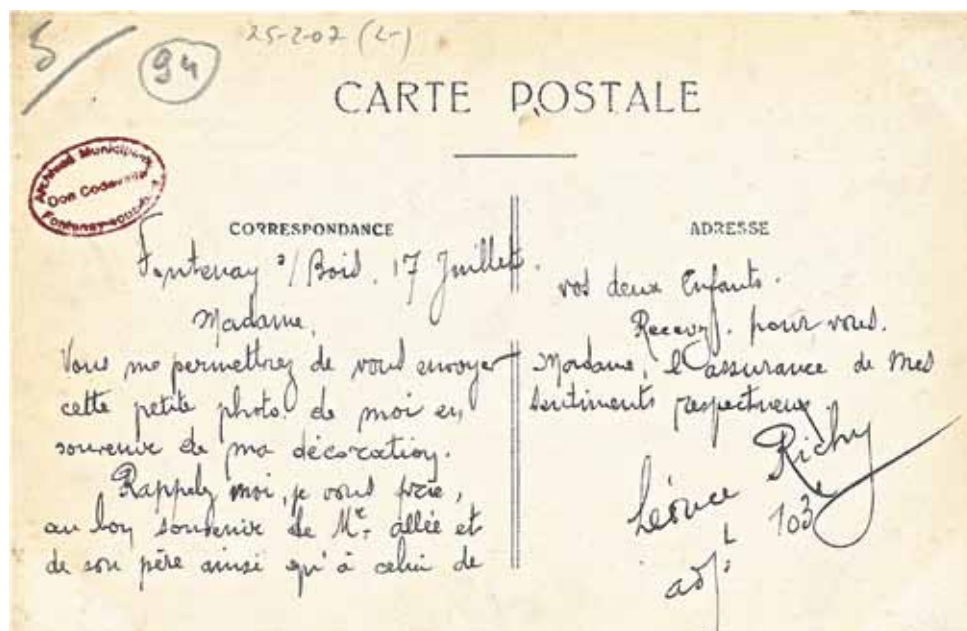 94
25-2-07 (2-)
CARTE POSTALE
Archives Municipales
Don
Fontenay-sous-
CORRESPONDANCE
Fontenay s/ Bois. 17 Juillet.
Madame,
Vous me permettrez de vous envoyer
cette petite photo de moi en
souvenir de ma décoration.
Rappelez moi, je vous prie,
au bon souvenir de Mr. allée et
de son père ainsi qu'à celui de
ADRESSE
vos deux Enfants.
Recevez. pour vous.
Madame, l'assurance de mes
sentiments respectueux.
Léonce Richy
adjt 103e